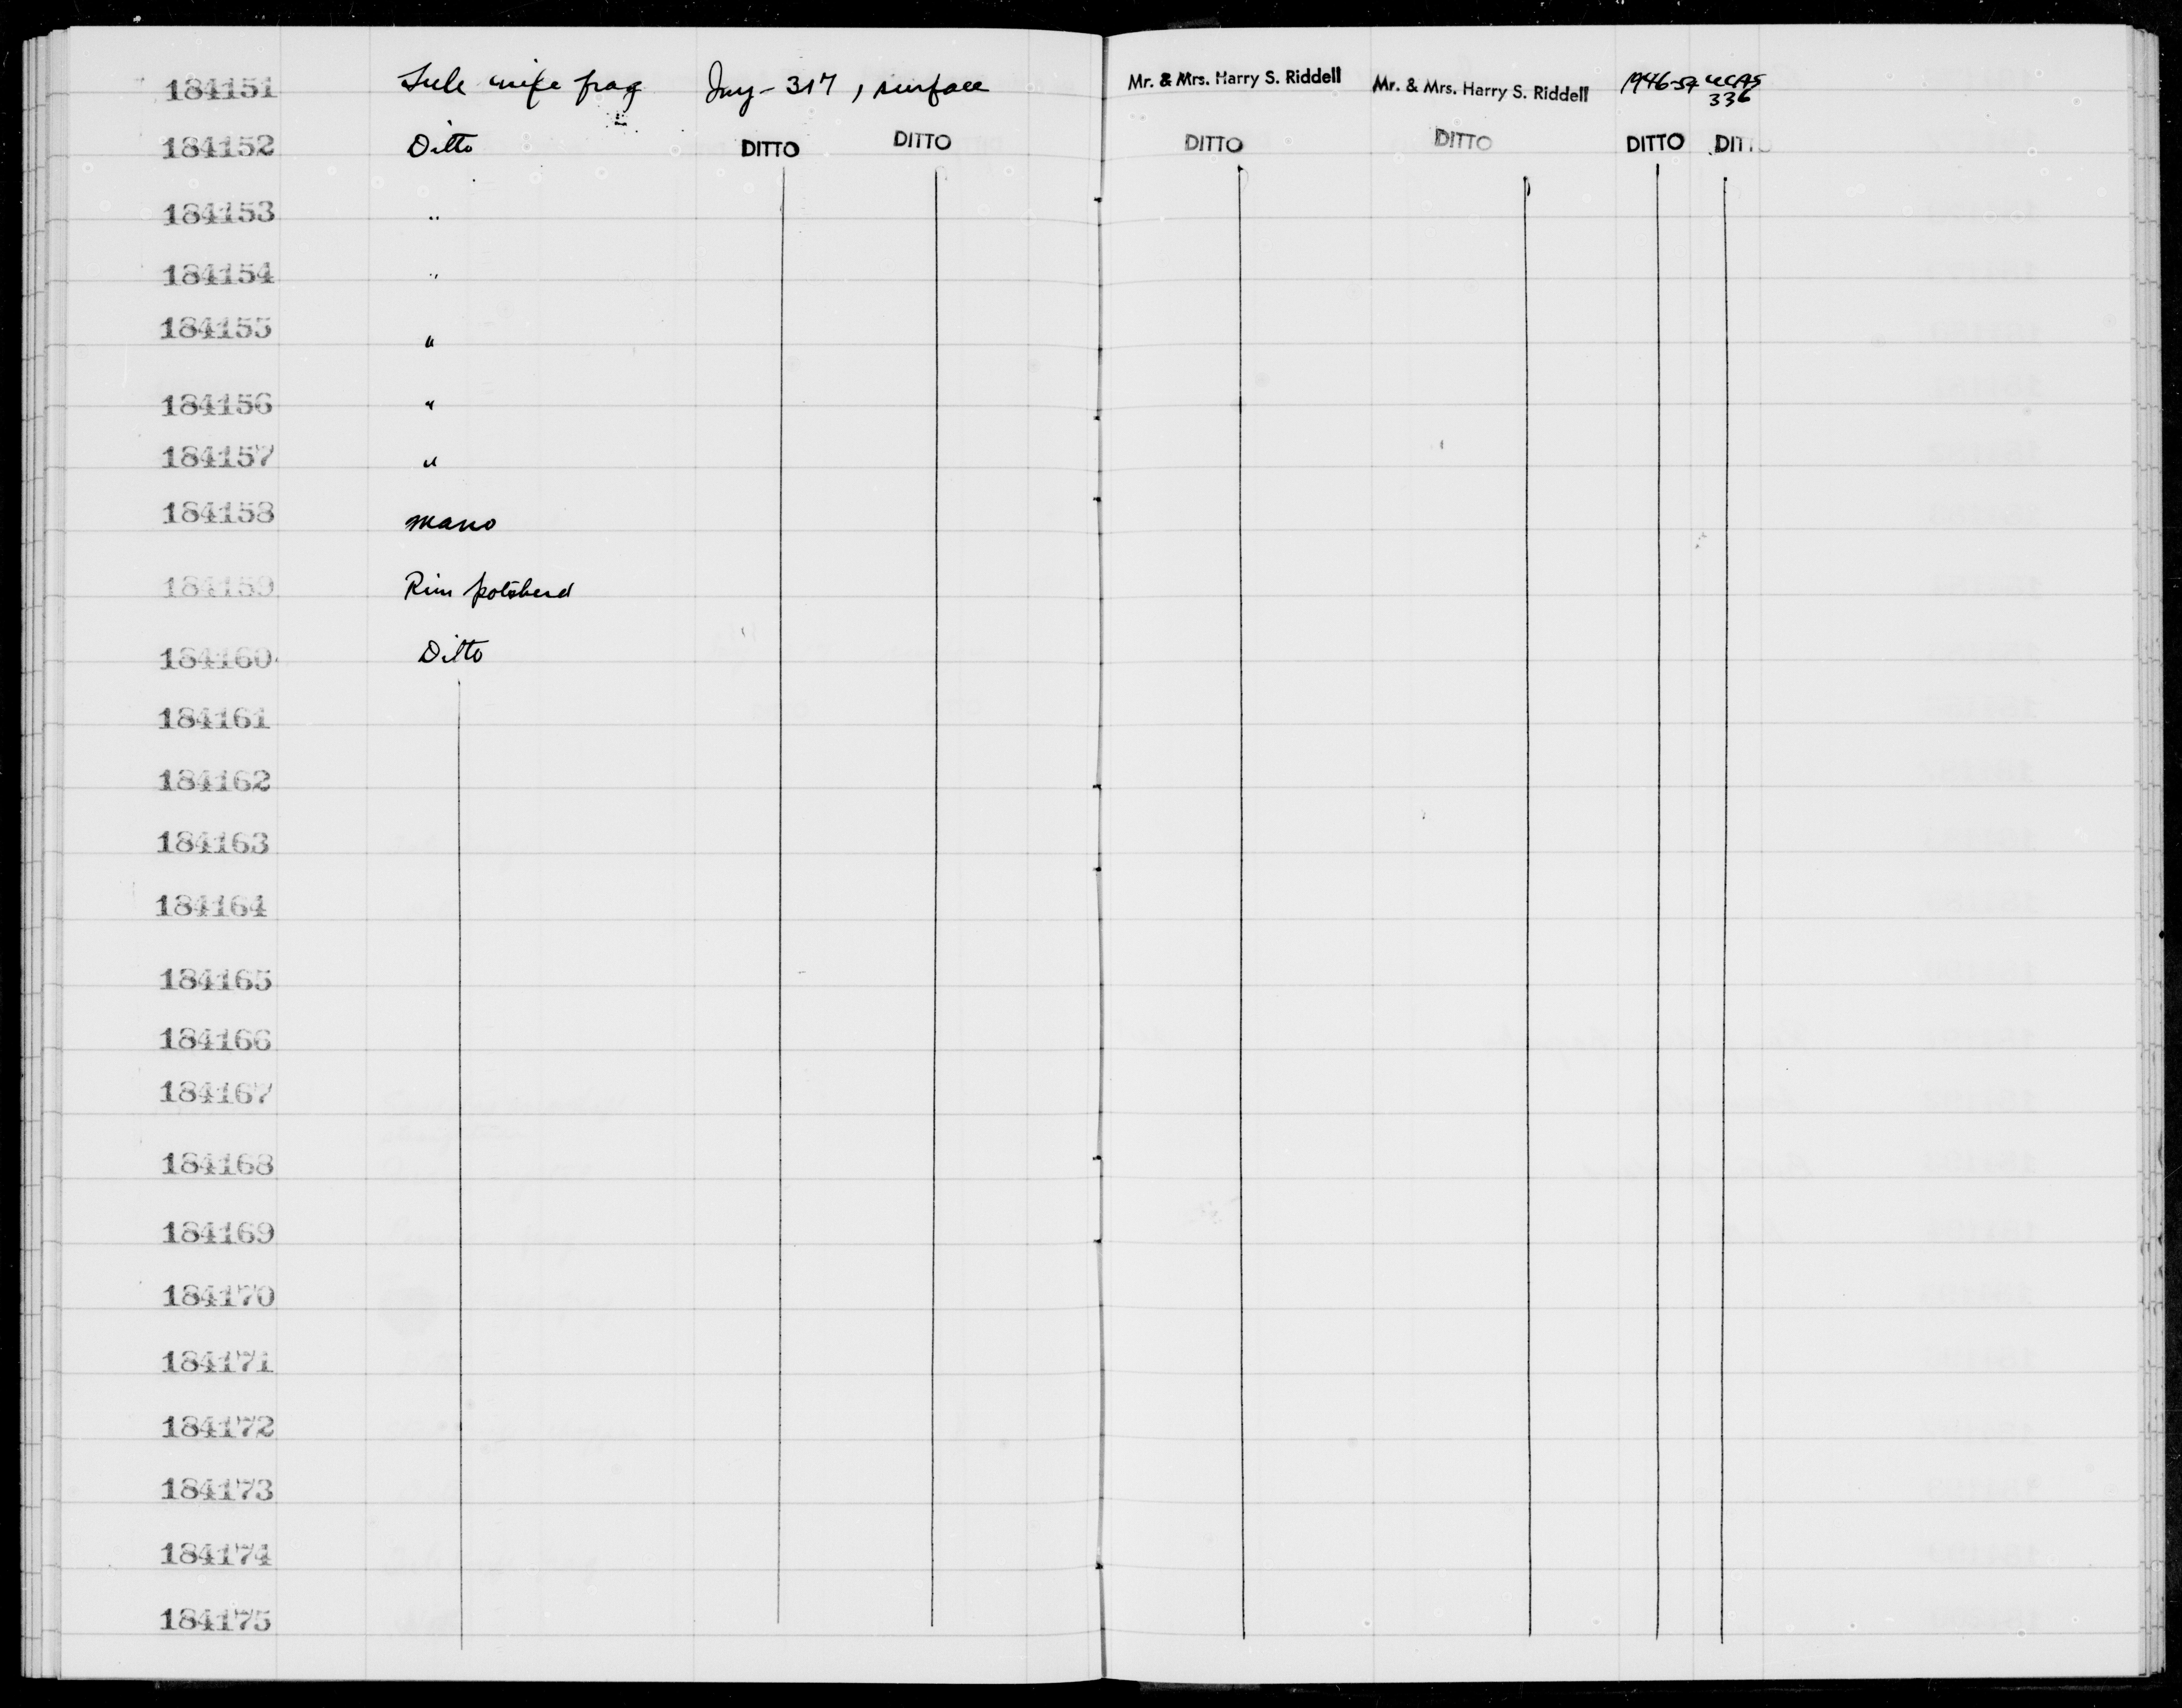 184151 knife frag Iny-317, surface Mr. & Mrs. Harry S. Riddell Mr. & Mrs. Harry S. Riddell 1946-54 UCAS 336
184152 Ditto DITTO DITTO DITTO DITTO DITTO DITTO
184153 "
184154 "
184155 "
184156 "
184157 "
184158 mano
184159 Rim potsherd
184160 Ditto
184161
184162
184163
184164
184165
184166
184167
184168
184169
184170
184171
184172
184173
184174
184175